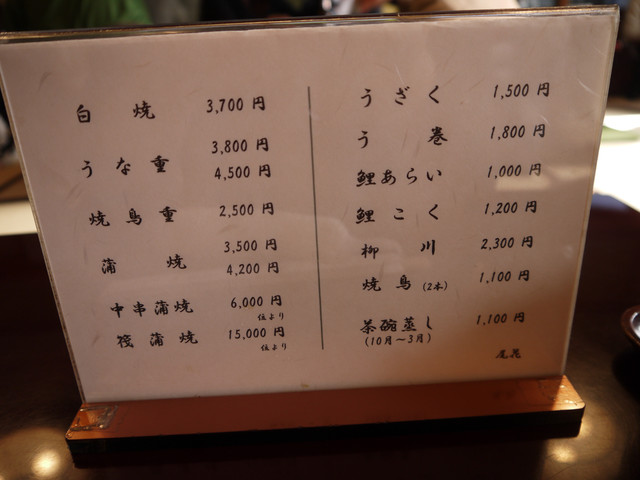 白焼 3,700 円
うな重 3,800 円
4,500 円
焼鳥重 2,500 円
蒲焼 3,500 円
4,200 円
中串蒲焼 6,000 円
位より
筏蒲焼 15,000 円
位より
うざく 1,500 円
う巻 1,800 円
鯉あらい 1,000 円
鯉こく 1,200 円
柳川 2,300 円
焼鳥(2本) 1,100 円
茶碗蒸し 1,100 円
(10月〜3月)
尾花